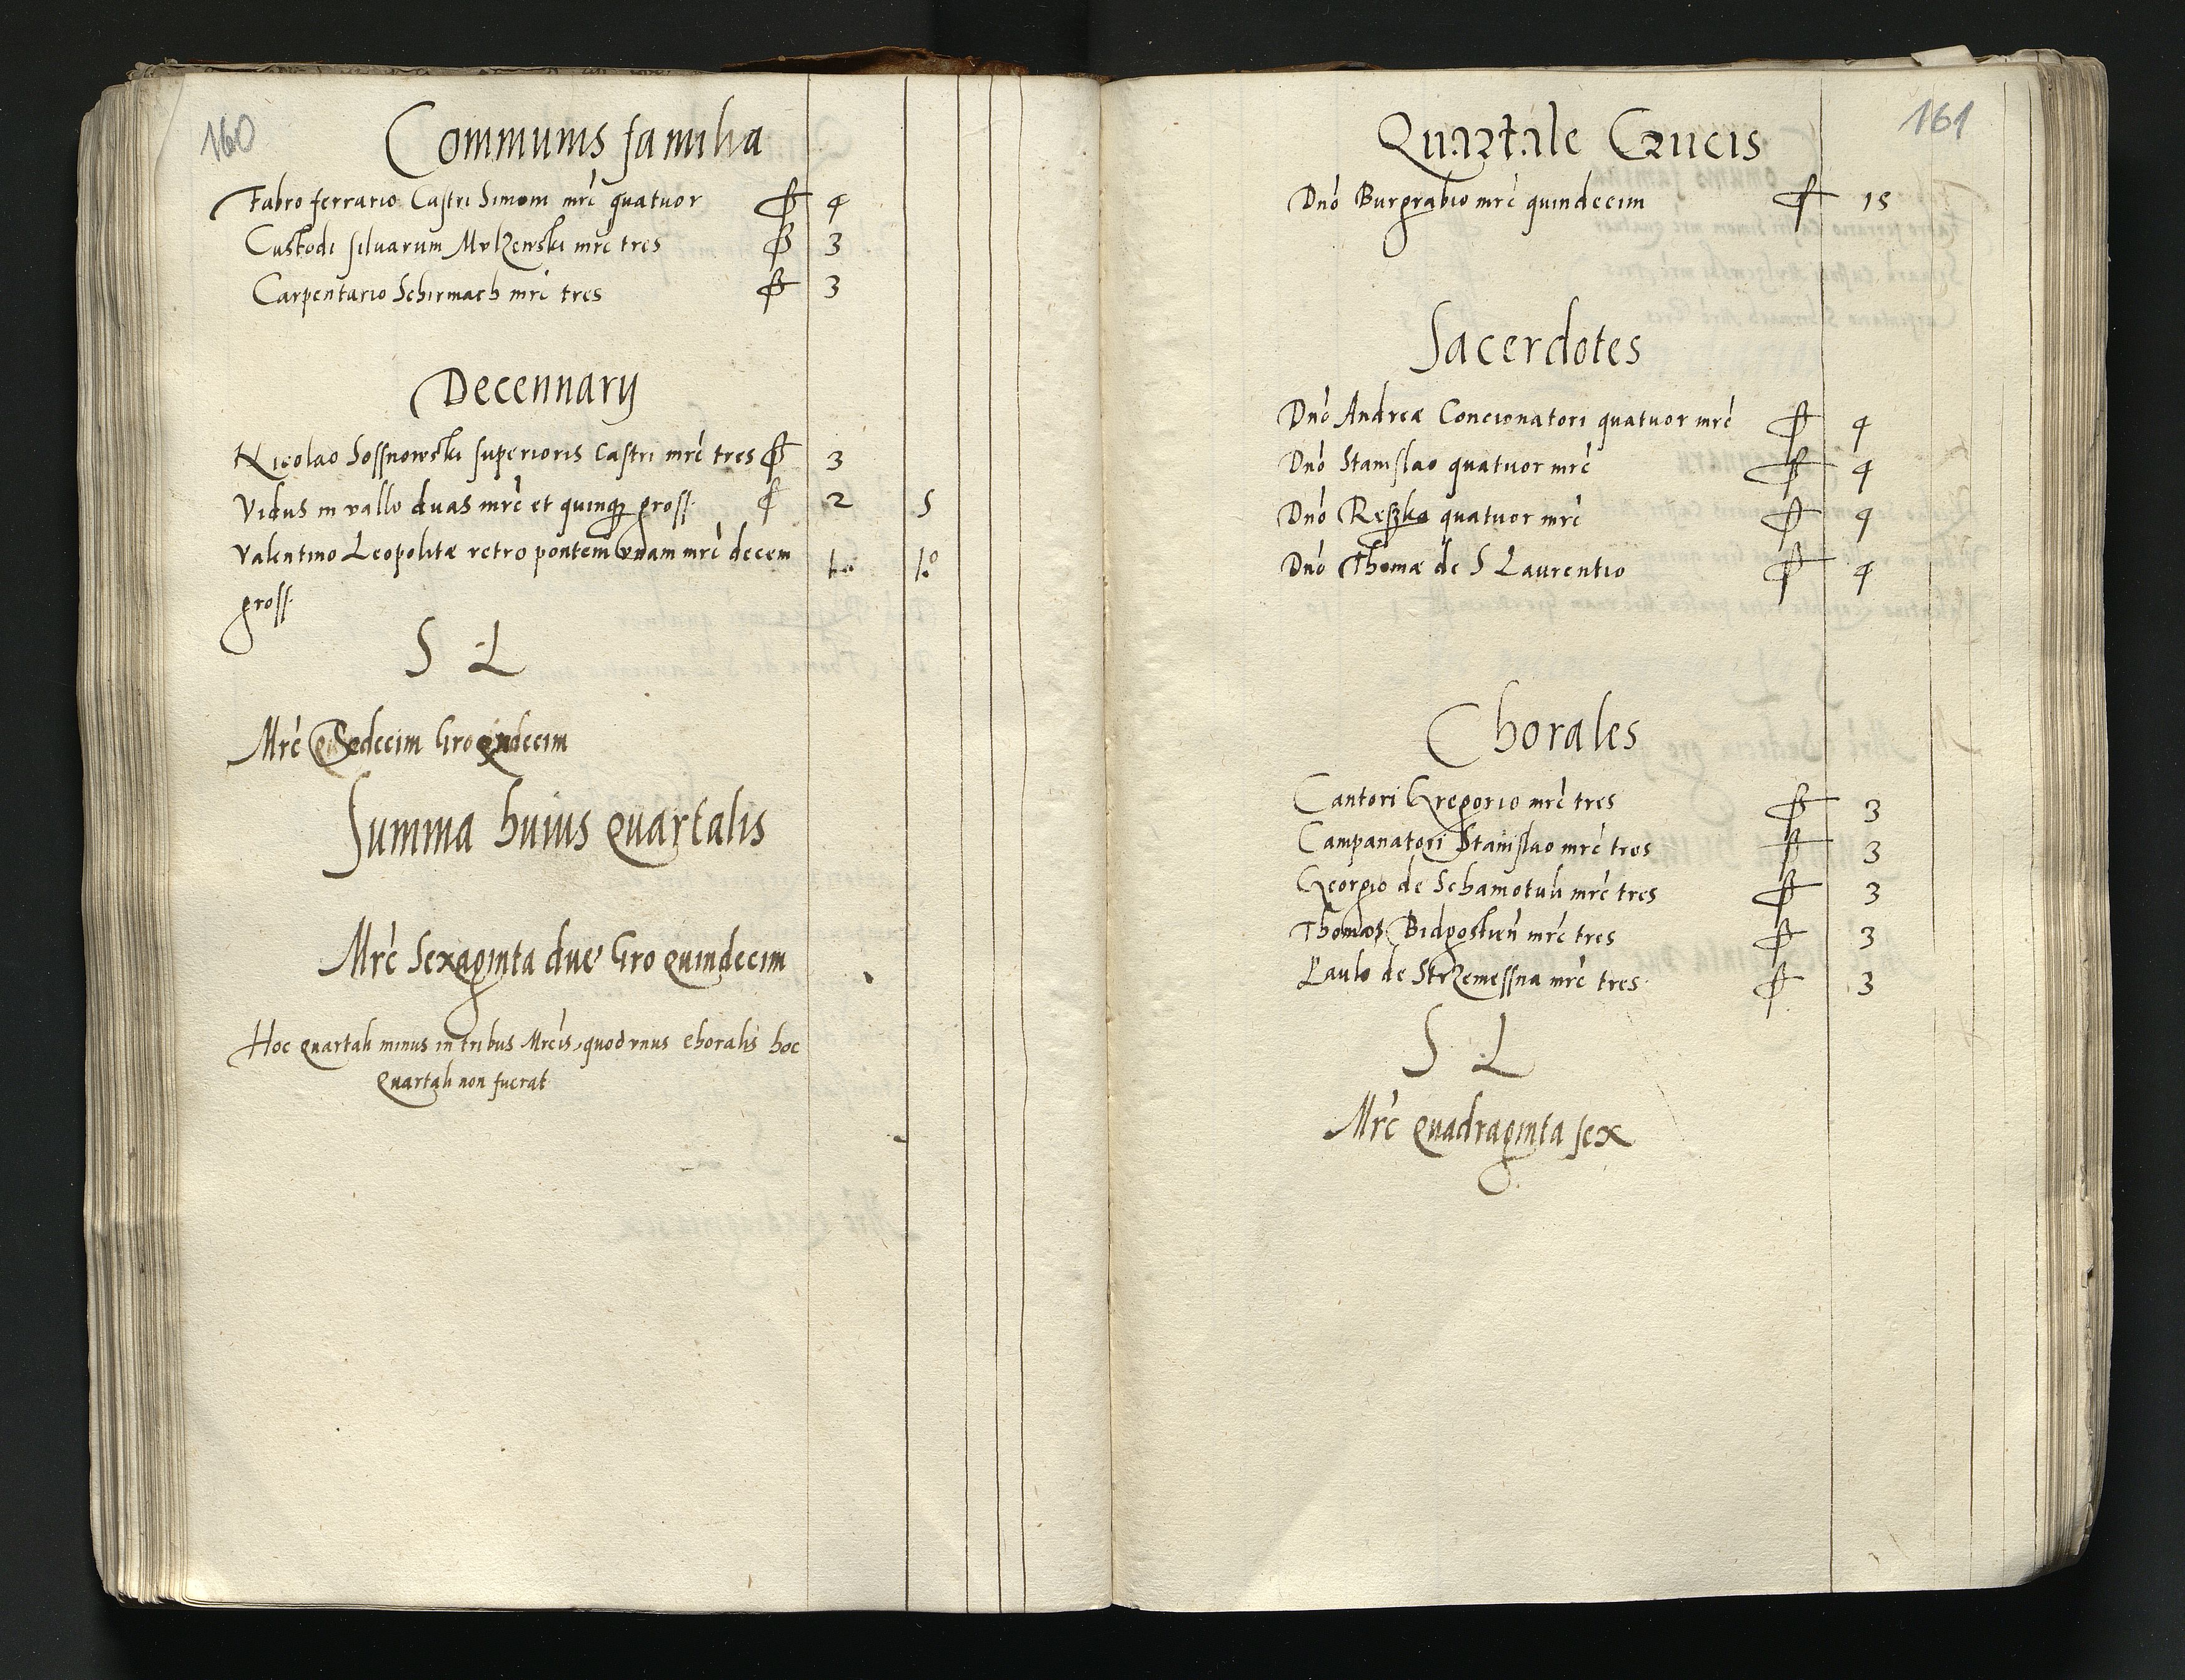 160
Communis familia
Fabro ferrario Castri Simoni mrć quatuor 4
Custodi silvarum Mylzenski mrć tres 3
Carpentario Schirmach mrć tres 3
Decennarij
Nicolao Sossnowski superioris Castri mrć tres 3
Vidus in vallo duas mrć et quinqʒ gross. 2 5
Valentino Leopolitæ retro pontem vnam mrć decem 1 10
gross.
S L
Mrć Sedecim Gro quindecim
Summa huius quartalis
Mrć Sexaginta due Gro quindecim
Hoc quartali minus in tribus Mrćis, quod vnus choralis hoc
quartali non fuerat
161
Quartale Crucis
Dnó Burgrabio mrć quindecim 15
Sacerdotes
Dnó Andreæ Concionatori quatuor mrć 4
Dnó Stanislao quatuor mrć 4
Dnó Reszka quatuor mrć 4
Dnó Thomæ de S Laurentio 4
Chorales
Cantori Gregorio mrć tres 3
Campanatori Stanislao mrć tres 3
Georgio de Schamotuli mrć tres 3
Thomæ Bidgostień mrć tres 3
Paulo de Strzemessna mrć tres 3
S L
Mrć quadraginta sex